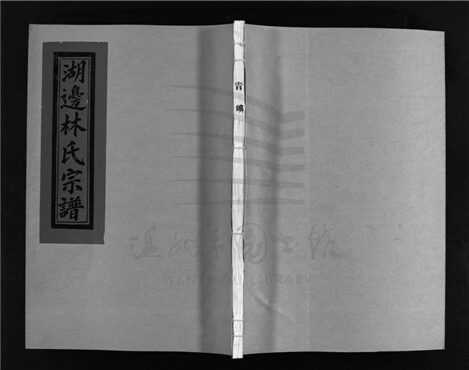 湖邊林氏宗譜
青
溫州市圖書館
WENZHOU LIBRARY